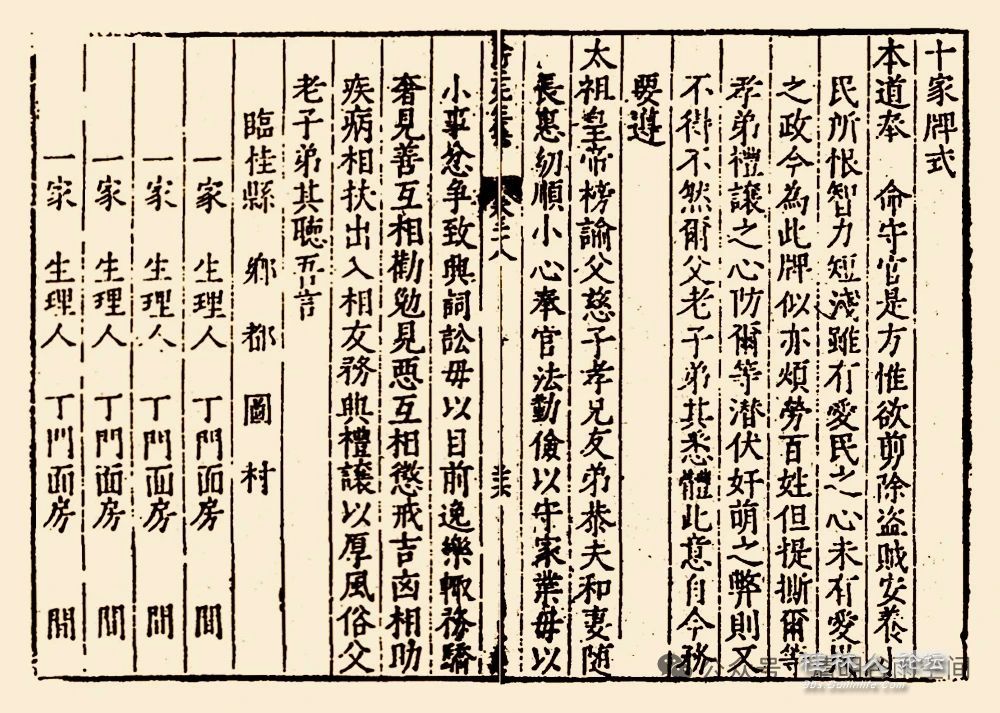 十家牌式
本道奉　命守官是方惟欲剪除盜賊安養小
民所恨智力短淺雖有愛民之心未有愛
之政今為此牌似亦煩勞百姓但提撕爾等
孝弟禮讓之心防爾等潛伏奸萌之弊則又
不得不然爾父老子弟其悉體此意自今務
要遵
太祖皇帝榜諭父慈子孝兄友弟恭夫和妻隨
長惠幼順小心奉官法勤儉以守家業毋以
卷三八
小事忿争致興詞訟毋以目前逸樂輒務驕
奢見善互相勸勉見惡互相懲戒吉凶相助
疾病相扶出入相友務興禮讓以厚風俗父
老子弟其聽吾言
臨桂縣　鄉　都　圖　村
一家　生理人　丁門面房　間
一家　生理人　丁門面房　間
一家　生理人　丁門面房　間
一家　生理人　丁門面房　間
公众号
空间
桂林人论坛
bbs.guilinlife.com